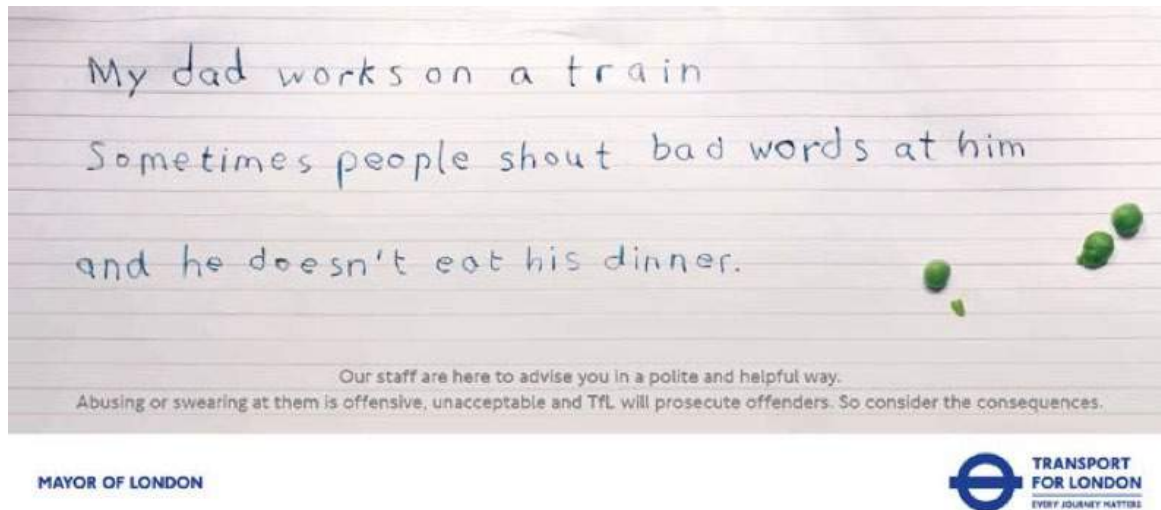 My dad works on a train
Sometimes people shout bad words at him
and he doesn't eat his dinner.
Our staff are here to advise you in a polite and helpful way.
Abusing or swearing at them is offensive, unacceptable and TfL will prosecute offenders. So consider the consequences.
MAYOR OF LONDON
TRANSPORT
FOR LONDON
EVERY JOURNEY MATTERS